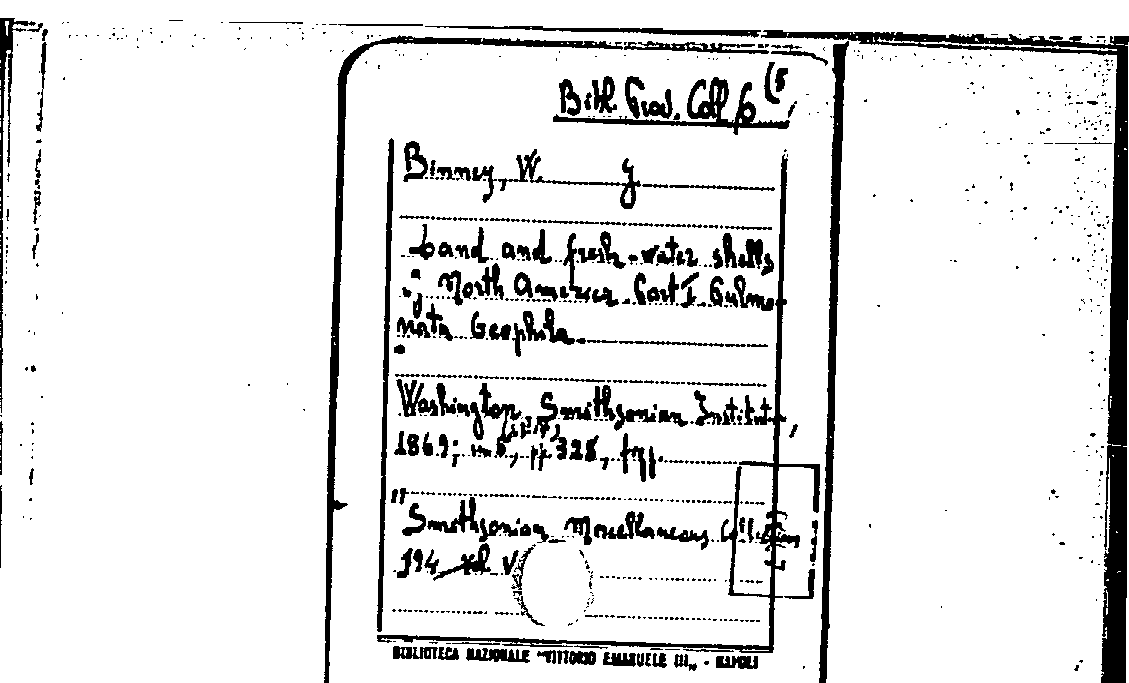 Bibl. Prov. Coll 6 (5
Binney, W. G
Land and fresh-water shells
of North America. Part I Pulmo-
nata Geophila.
Washington, Smithsonian Institut,
1869; in 8, pp 328, figg.
"Smithsonian Miscellaneous Collection
194 vol V
BIBLIOTECA NAZIONALE "VITTORIO EMANUELE III" - NAPOLI